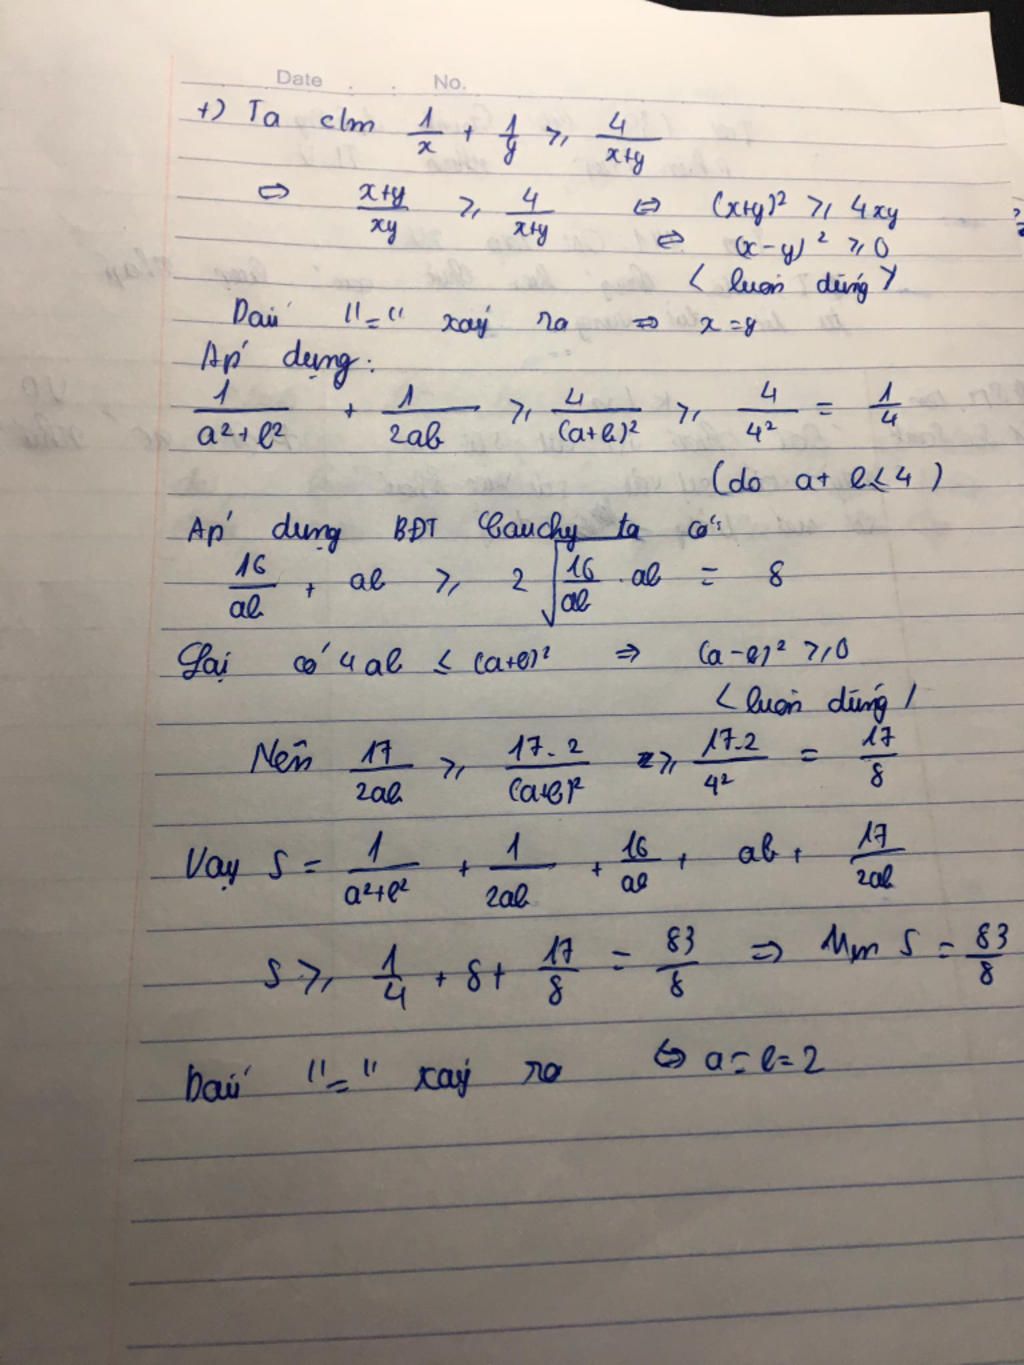 Date . . No.
+) Ta c/m 1/x + 1/y ≥ 4/(x+y)
⇔ (x+y)/xy ≥ 4/(x+y) ⇔ (x+y)² ≥ 4xy
⇔ (x-y)² ≥ 0
< luôn đúng >
Dấu "=" xảy ra ⇔ x = y
Áp dụng:
1/(a²+b²) + 1/2ab ≥ 4/(a+b)² ≥ 4/4² = 1/4
(do a+b ≤ 4)
Áp dụng BĐT Cauchy ta có:
16/ab + ab ≥ 2√(16/ab . ab) = 8
Lại có 4ab ≤ (a+b)² ⇒ (a-b)² ≥ 0
< luôn đúng /
Nên 17/2ab ≥ 17.2/(a+b)² ≥ 17.2/4² = 17/8
Vậy S = 1/(a²+b²) + 1/2ab + 16/ab + ab + 17/2ab
S ≥ 1/4 + 8 + 17/8 = 83/8 ⇒ Min S = 83/8
Dấu "=" xảy ra ⇔ a = b = 2